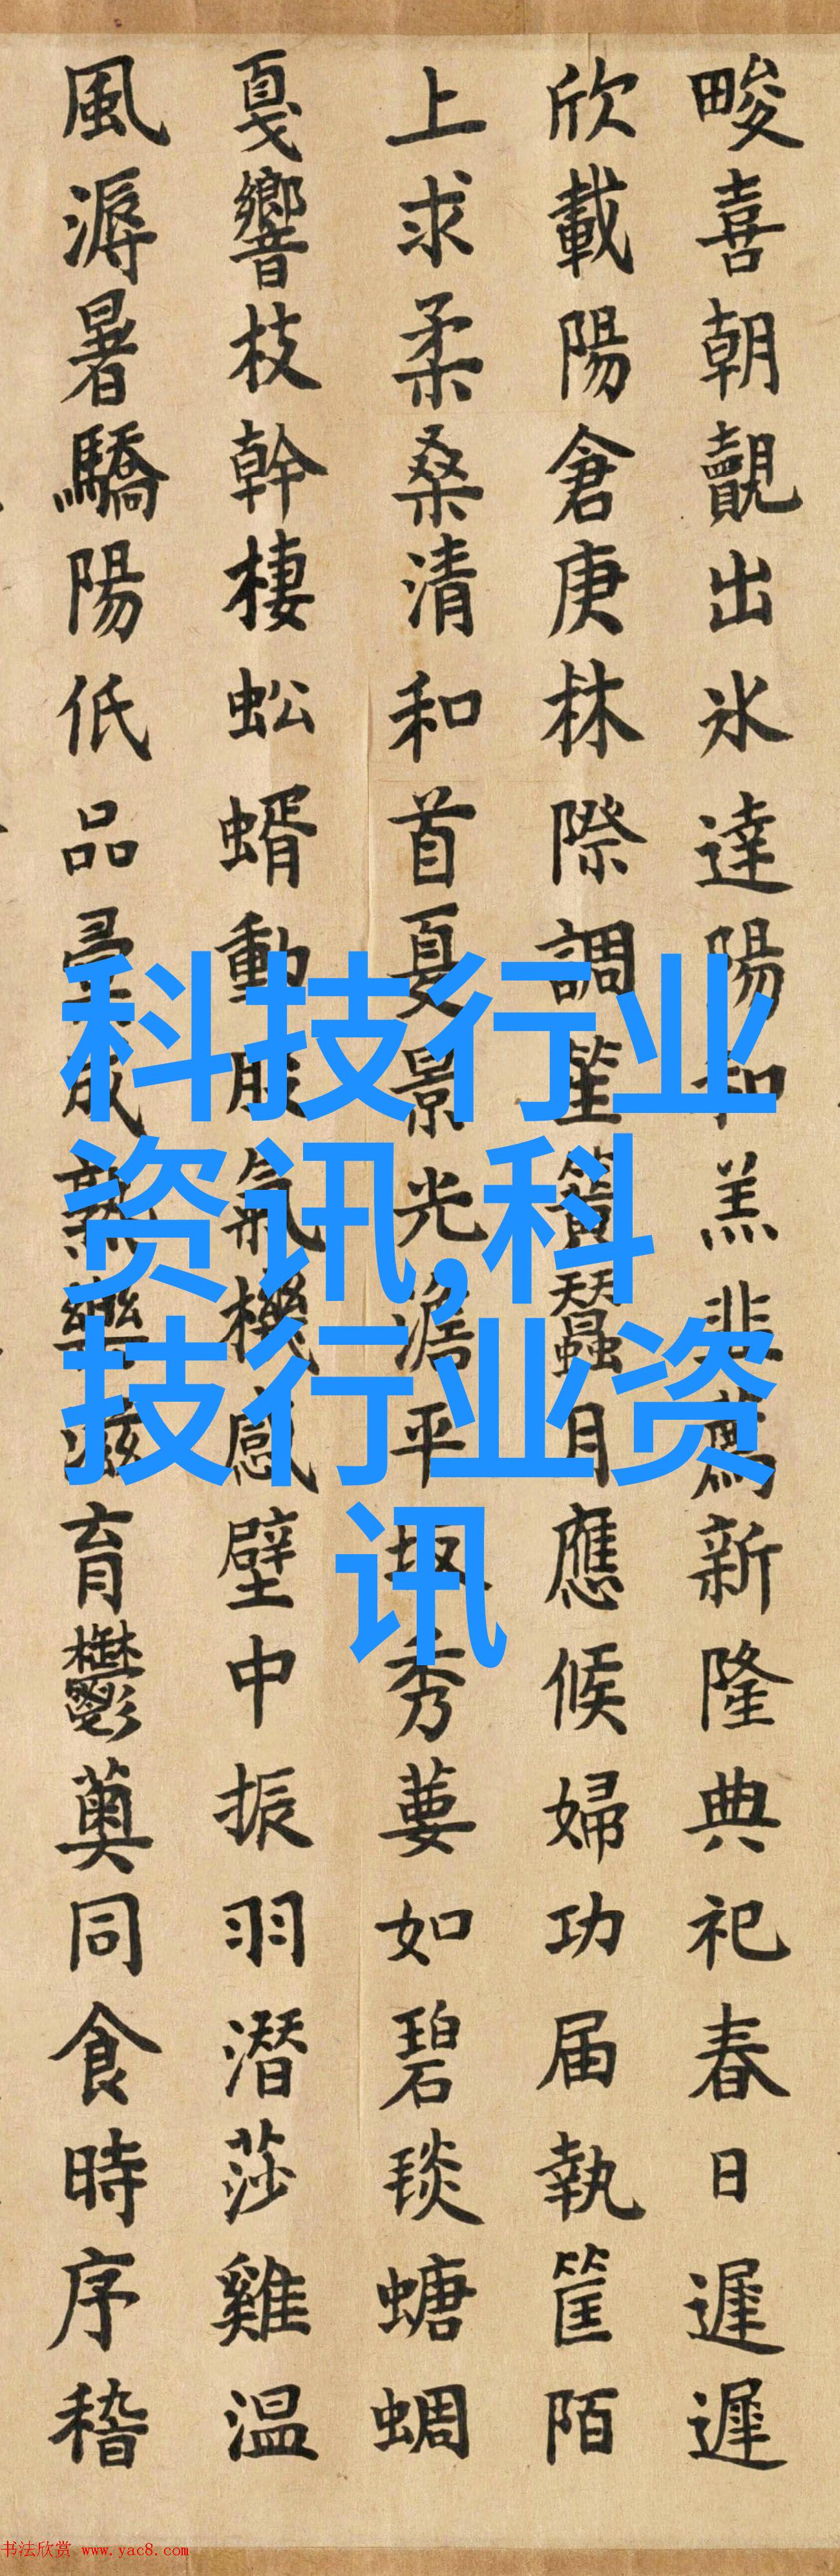 畯喜朝覿出氷達陽和羔韭薦新隆典祀春日遲遲
欣載陽倉庚林際調笙簧蠶月應候婦功届執筐陌
上求柔桑清和首夏景光澹平秀葽如碧琰螗蜩
戛響枝幹棲蚣蝑動股氣機感壁中振羽潛莎雞温
風溽暑驕陽低品成熟樂滋育鬱薁同食時序稽
科技行业
资讯,科
技行业资
讯
书法欣赏 www.yac8.com